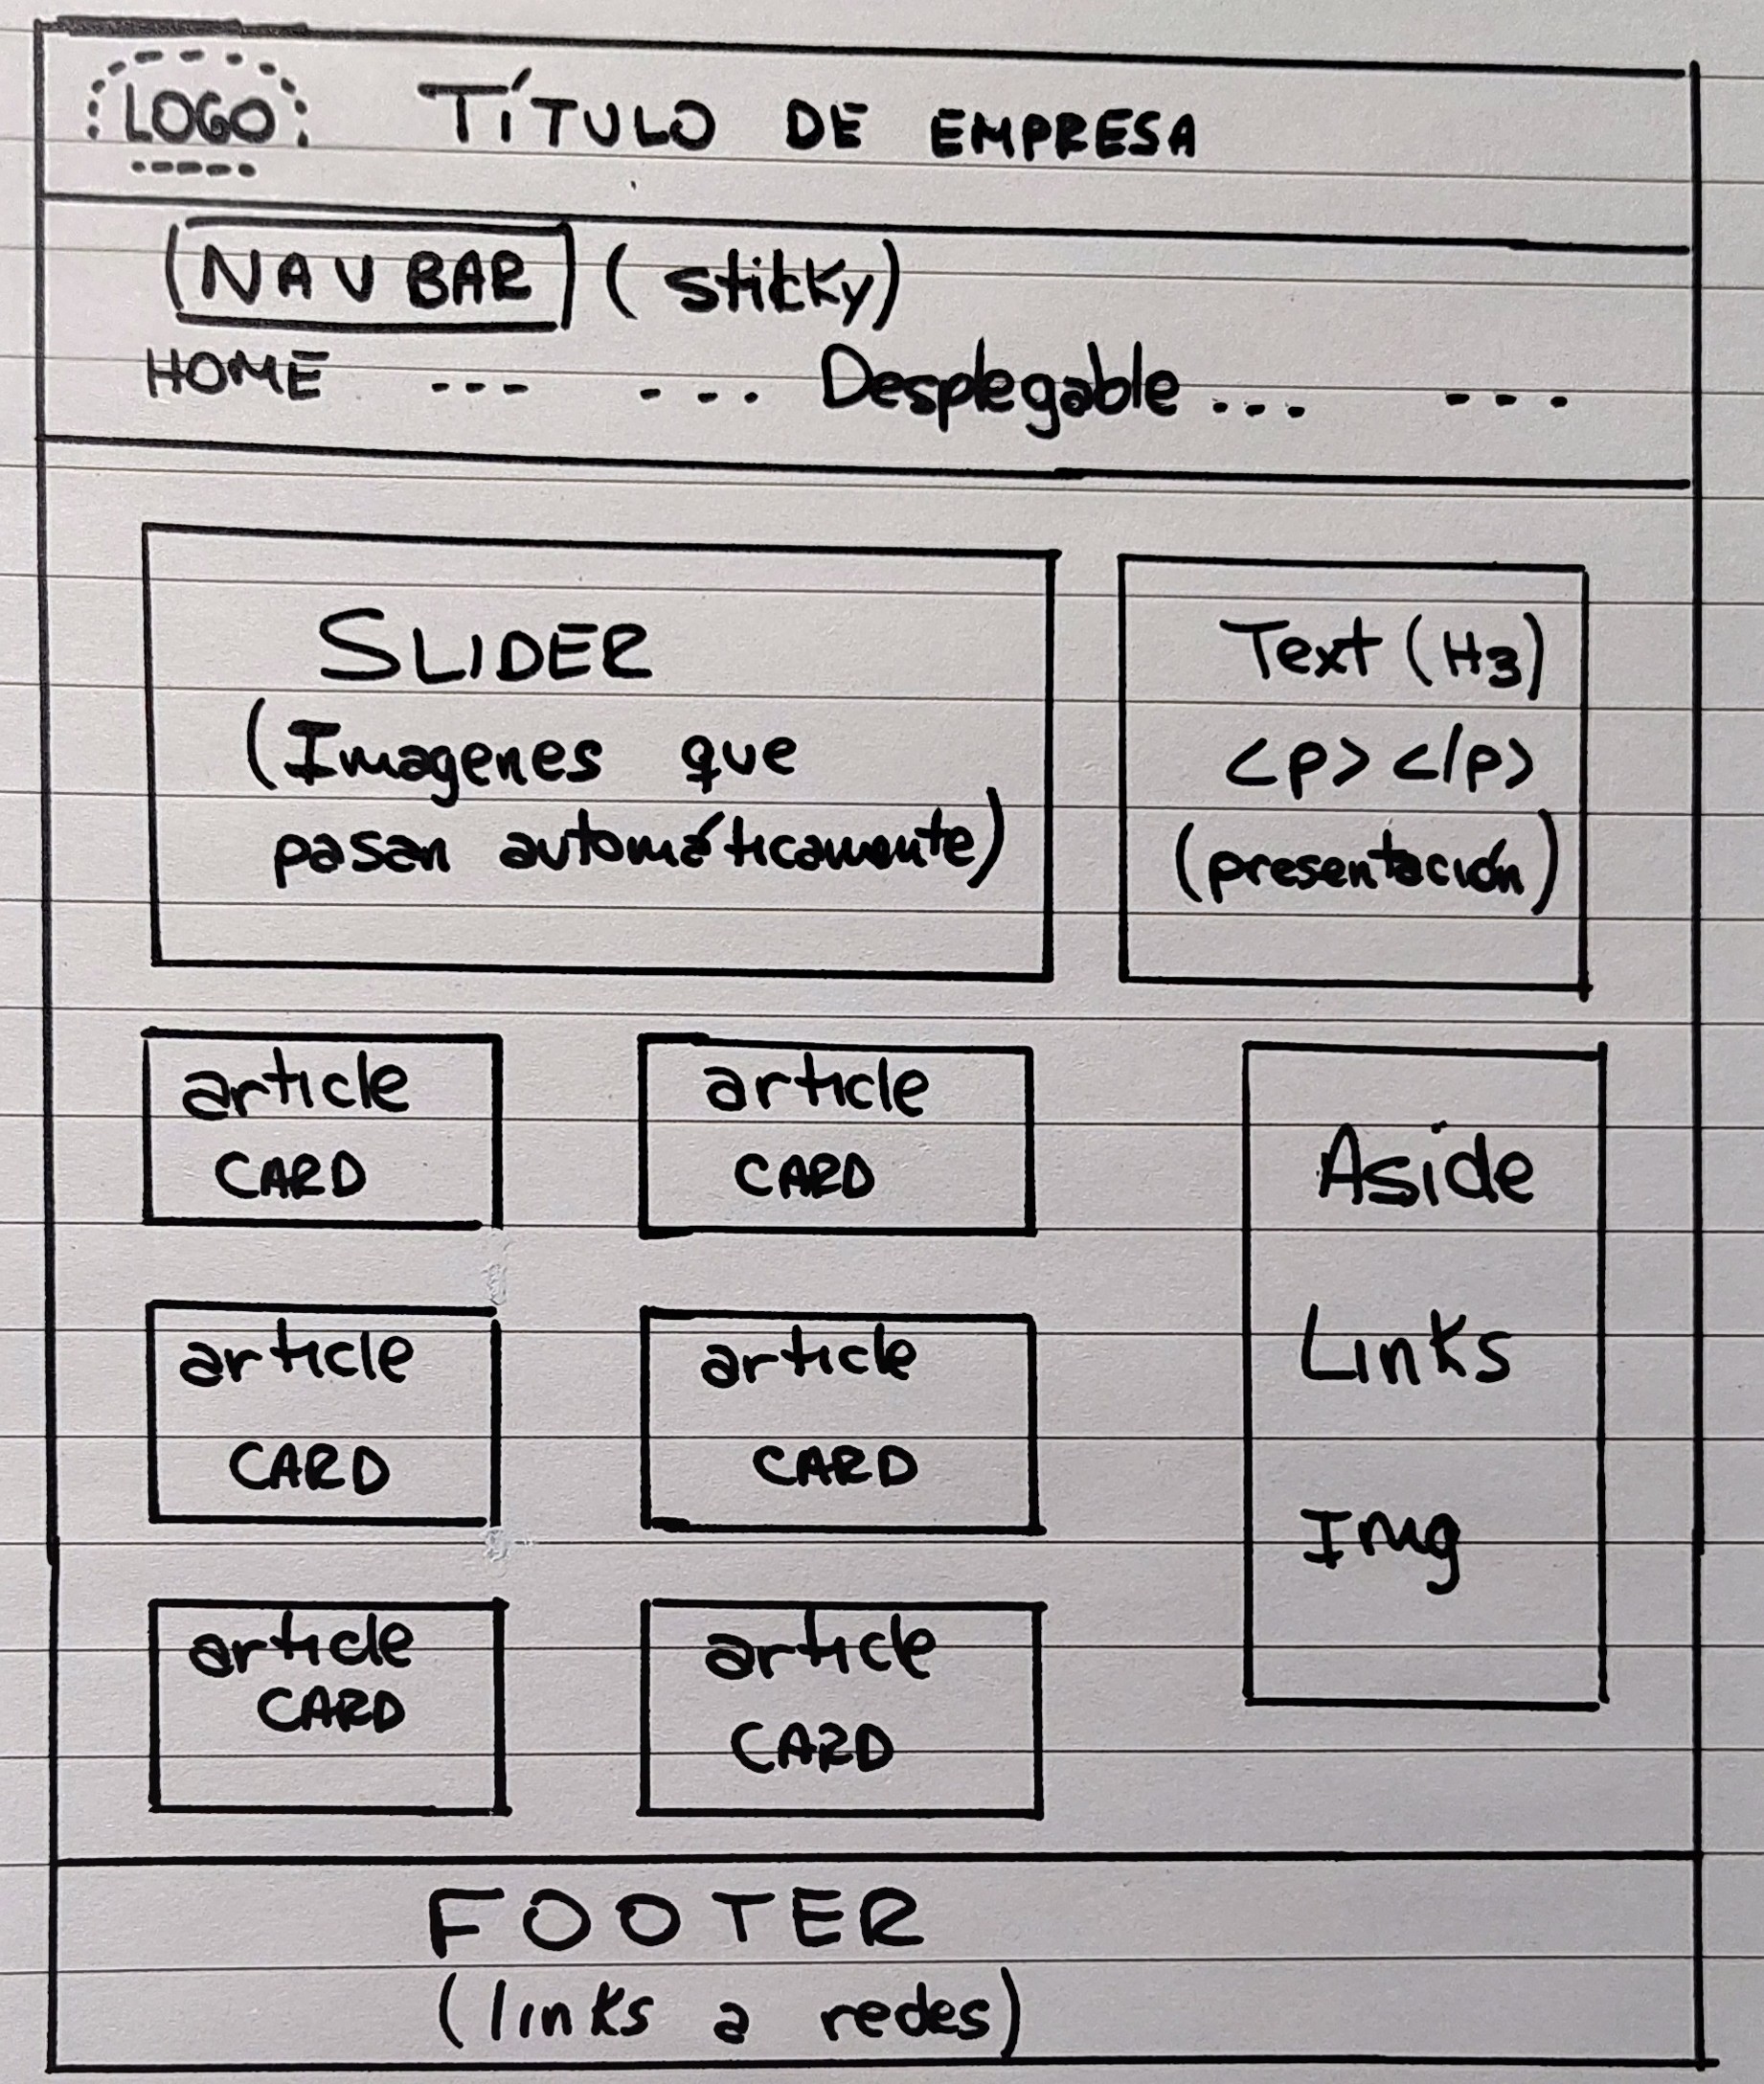 LOGO TÍTULO DE EMPRESA
(NAV BAR) (sticky)
HOME --- --- Desplegable ... ---
SLIDER
(Imagenes que
pasan automáticamente)
Text (H3)
<p> </p>
(presentación)
article
CARD
article
CARD
Aside
Links
Img
article
CARD
article
CARD
article
CARD
article
CARD
FOOTER
(links a redes)